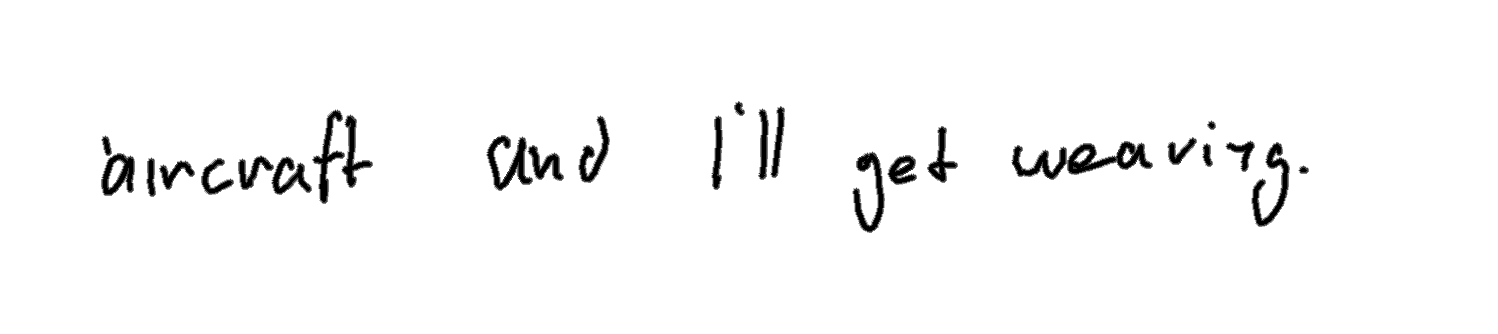 aircraft and I'll get weaving.